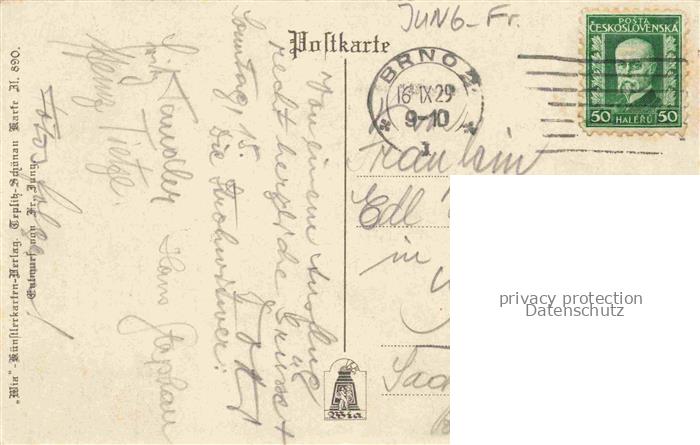 JUNG-Fr.
Postkarte
POŠTA
ČESKOSLOVENSKÁ
50 HALÉŘŮ 50
BRNO 2
16 IX 29
9-10
1
Fräulein
Edl
in
privacy protection
Datenschutz
Wia
Von einem Ausflug
recht herzliche Grüsse
Sonntag, 15.
Die Strohwitwer:
Hans
Tietze
"Wia"-Künstlerkarten-Verlag, Teplitz-Schönau Karte Nr. 890.
Entwurf von Fr. Jung.